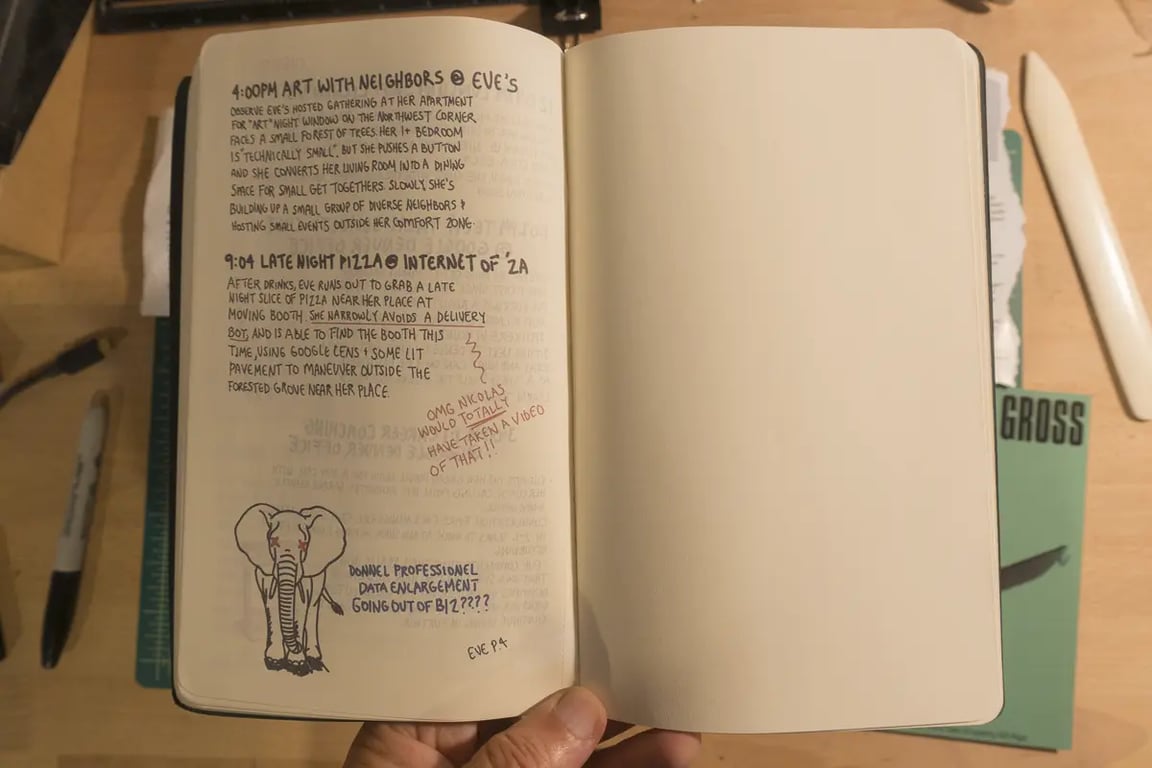 4:00PM ART WITH NEIGHBORS @ EVE'S
OBSERVE EVE'S HOSTED GATHERING AT HER APARTMENT
FOR "ART" NIGHT WINDOW ON THE NORTHWEST CORNER
FACES A SMALL FOREST OF TREES. HER 1+ BEDROOM
IS "TECHNICALLY SMALL", BUT SHE PUSHES A BUTTON
AND SHE CONVERTS HER LIVING ROOM INTO A DINING
SPACE FOR SMALL GET TOGETHERS. SLOWLY, SHE'S
BUILDING UP A SMALL GROUP OF DIVERSE NEIGHBORS &
HOSTING SMALL EVENTS OUTSIDE HER COMFORT ZONE.
9:04 LATE NIGHT PIZZA @ INTERNET OF 'ZA
AFTER DRINKS, EVE RUNS OUT TO GRAB A LATE
NIGHT SLICE OF PIZZA NEAR HER PLACE AT
MOVING BOOTH. SHE NARROWLY AVOIDS A DELIVERY
BOT, AND IS ABLE TO FIND THE BOOTH THIS
TIME, USING GOOGLE LENS + SOME LIT
PAVEMENT TO MANEUVER OUTSIDE THE
FORESTED GROVE NEAR HER PLACE.
OMG NICOLAS
WOULD TOTALLY
HAVE TAKEN A VIDEO
OF THAT!!
DONNEL PROFESSIONEL
DATA ENLARGEMENT
GOING OUT OF BIZ????
EVE P.4
GROSS